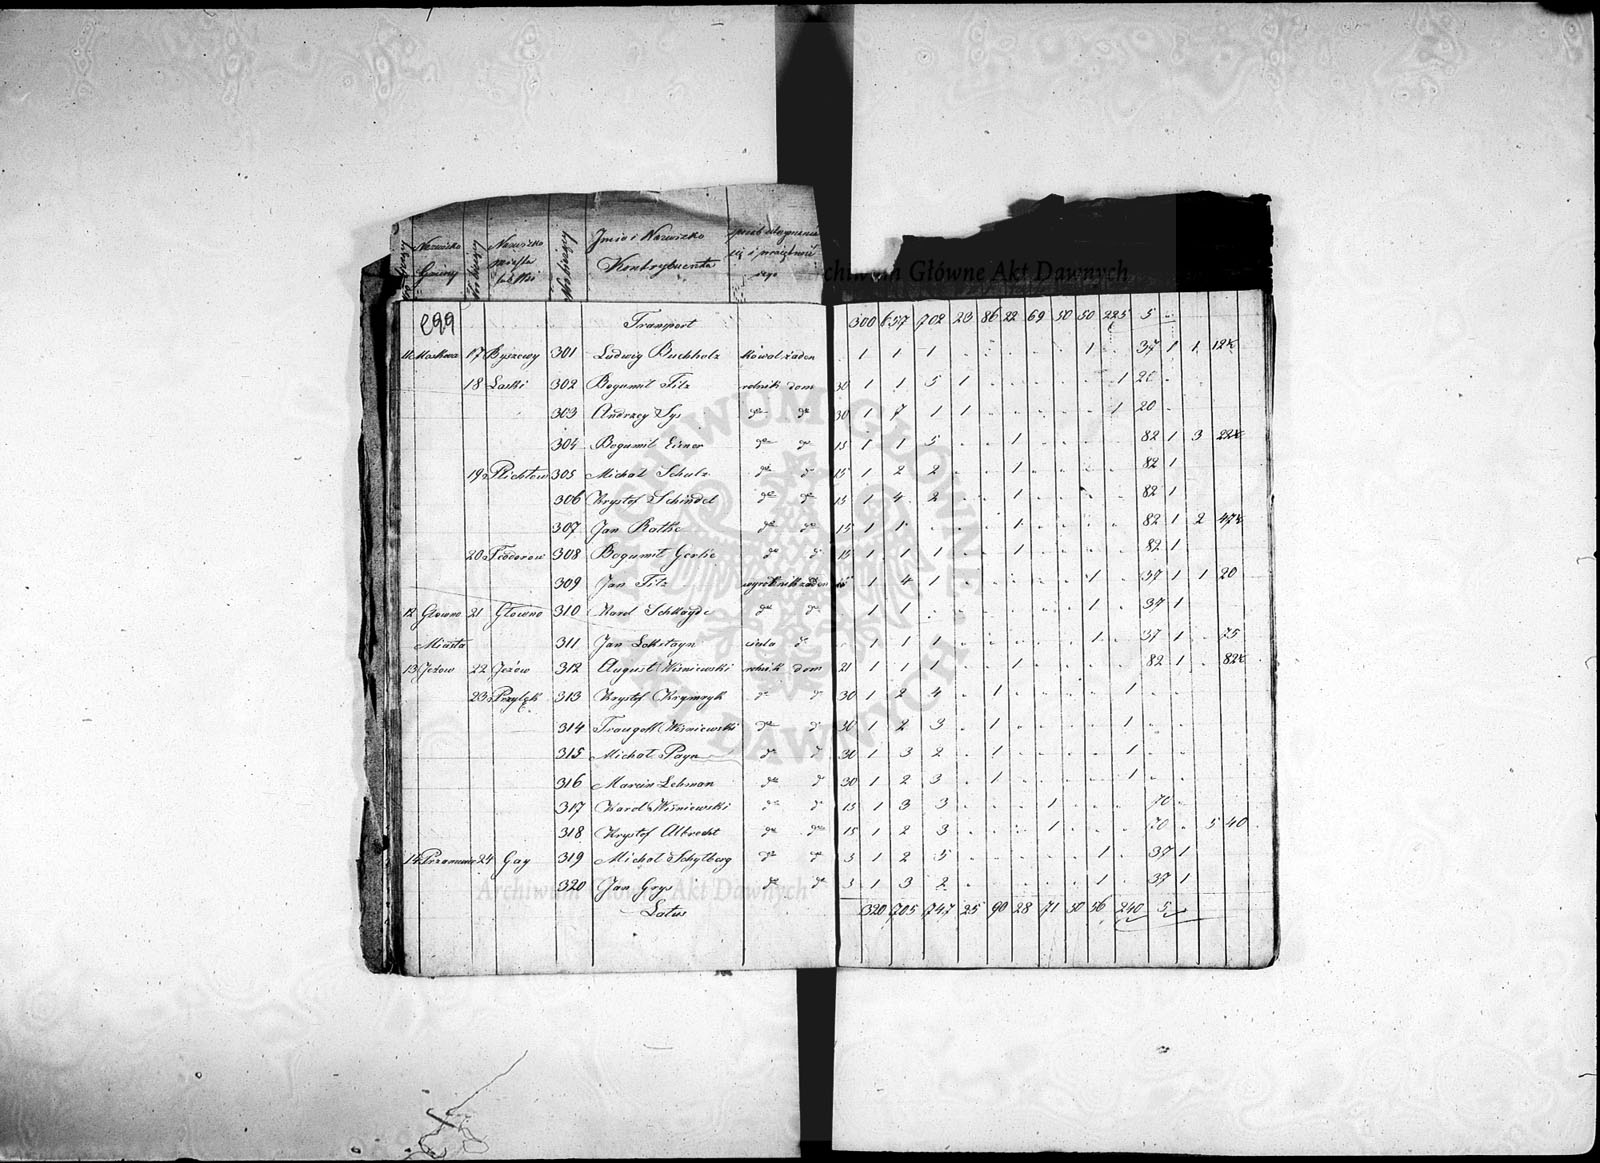 Nazwisko Gminy Nazwisko miasta lub Wsi Imie i Nazwisko Kontrybuenta
Archiwum Główne Akt Dawnych
299 Transport 300 657 702 23 86 22 69 50 50 225 5
11 Moskwa 17 Byszewy 301 Ludwig Buchholz kowal żaden 1 1 1 1 37 1 1 12½
18 Laski 302 Bogumił Filz rolnik dom 30 1 1 5 1 1 20
303 Andrzey Sys do do 30 1 7 1 1 1 20
304 Bogumił Eisner do do 15 1 1 5 1 82 1 3 22½
19 Plichtow 305 Michał Schulz do d 15 1 2 2 1 82 1
306 Krysztof Schindel do do 15 1 4 2 1 82 1
307 Jan Rathe do do 15 1 1 1 82 1 2 47½
20 Teodorow 308 Bogumił Gerlic do d 15 1 1 1 1 82 1
309 Jan Filz wyrobnik żaden 15 1 4 1 1 37 1 1 20
12 Głowno 21 Głowno 310 Karol Schkayde do do 1 1 1 37 1
Miasta 311 Jan Lokstayn cieśla d 1 1 1 1 37 1 75
13 Jeżow 22 Jeżow 312 August Wiśniewski rolnik dom 21 1 1 1 1 82 1 82½
23 Przyłęk 313 Krysztof Krymryk do d 30 1 2 4 1 1
314 Traugott Wiśniewski do d 30 1 2 3 1 1
315 Michał Payn d d 30 1 3 2 1 1
316 Marcin Lehman do d 30 1 2 3 1 1
317 Karol Wiśniewski do d 15 1 3 3 1 70
318 Krysztof Albrecht do do 15 1 2 3 1 70 5 40
14 24 Gay 319 Michał Schylberg do do 3 1 2 5 1 37 1
320 Jan Grys do do 3 1 3 2 1 37 1
Archiwum Główne Akt Dawnych
Latus 320 705 747 25 90 28 71 50 56 240 5